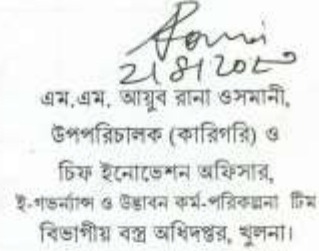 এম.এম. আয়ুব রানা ওসমানী,
উপপরিচালক (কারিগরি) ও
চিফ ইনোভেশন অফিসার,
ই-গভর্ন্যান্স ও উদ্ভাবন কর্ম-পরিকল্পনা টিম
বিভাগীয় বস্ত্র অধিদপ্তর, খুলনা।